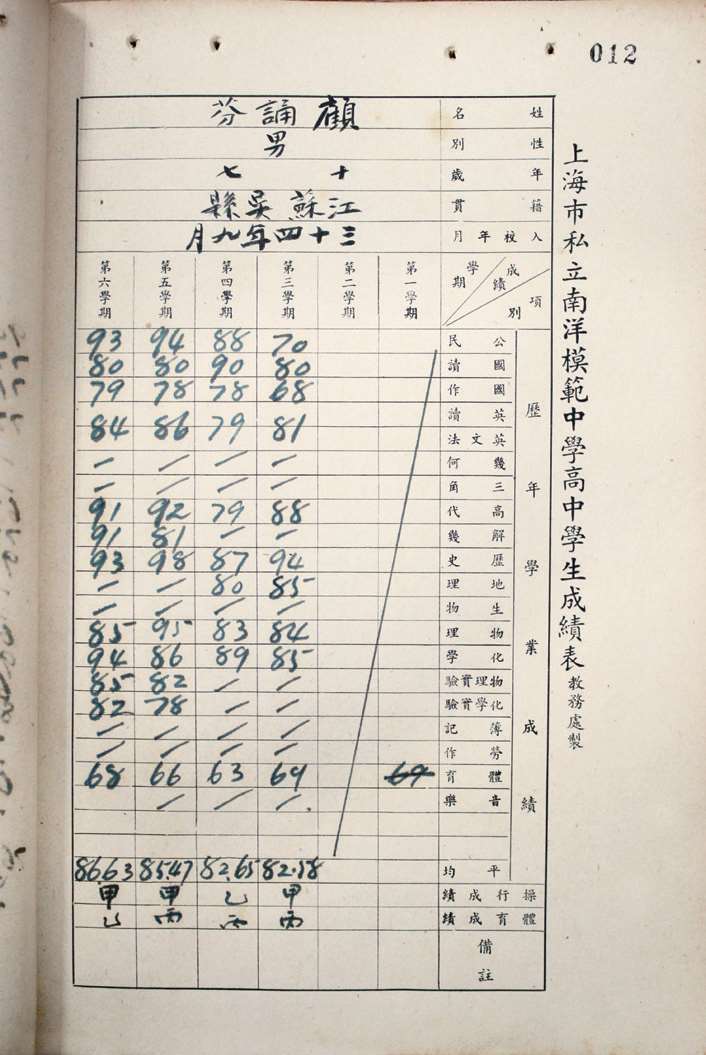 012
上海市私立南洋模範中學高中學生成績表 教務處製
姓名 顧誦芬
性別 男
年歲 十七
籍貫 江蘇吳縣
入校年月 三十四年九月
項別 成績 學期 第一學期 第二學期 第三學期 第四學期 第五學期 第六學期
歷年學業成績
公民 70 88 94 93
國讀 80 90 80 80
國作 68 78 78 79
英讀 81 79 86 84
英文法
幾何 / / / /
三角 / / / /
高代 88 79 92 91
解幾 / / 81 91
歷史 94 87 98 93
地理 85 80 / /
生物 / / / /
物理 84 83 95 85
化學 85 89 86 94
物理實驗 / / 82 85
化學實驗 / / 78 82
簿記 / / / /
勞作 / / / /
體育 69 69 63 66 68
音樂 / / /
平均 82.58 82.65 85.47 86.63
操行成績 甲 乙 甲 甲
體育成績 丙 丙 丙 乙
備註